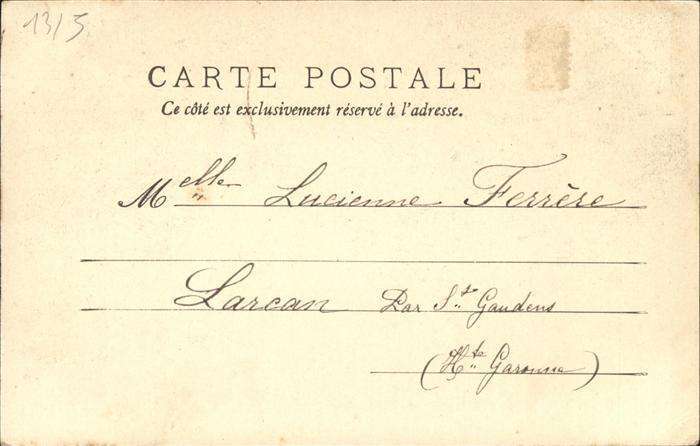 13/5
CARTE POSTALE
Ce côté est exclusivement réservé à l'adresse.
Melle Lucienne Ferrère
Larcan Par St Gaudens
(Hte Garonne)